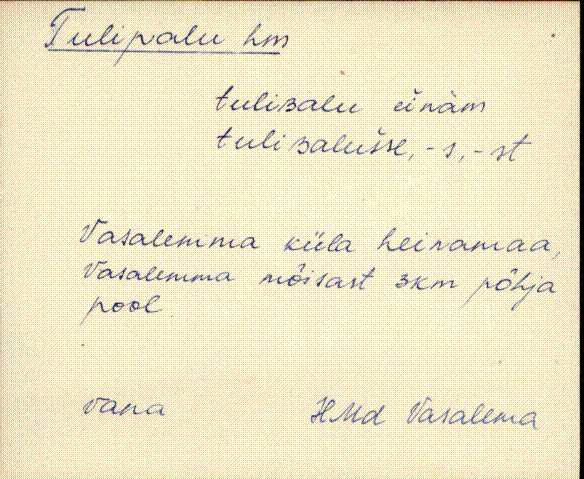 Tulipalu hm
tuliʙalu einäm
tuliʙalusse, -s, -st
Vasalemma küla heinamaa,
Vasalemma mõisast 3km põhja
pool
vana
HMd Vasalema